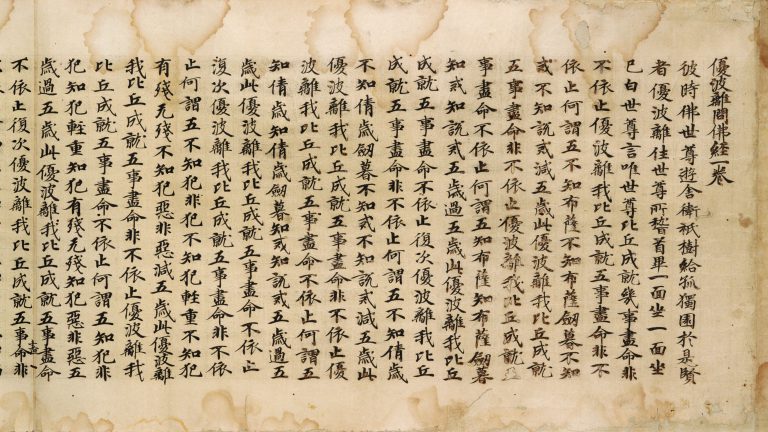 優波離問佛經一卷
彼時佛世尊遊舍衛祇樹給孤獨園於是賢
者優波離住世尊所𥡴首畢一面坐一面坐
已白世尊言唯世尊比丘成就幾事盡命非
不依止優波離我比丘成就五事盡命非不
依止何謂五不知布薩不知布薩劒暮不知
戒不知説戒減五歲此優波離我比丘成就
五事盡命非不依止優波離我比丘成就五
事盡命不依止何謂五知布薩知布薩劒暮
知戒知説戒五五歲過五歲此優波離我比丘
成就五事盡命不依止復次優波離我比丘
成就五事盡命非不依止何謂五不知倩歲
不知倩歲劒暮不知戒不知説戒減五歲此
優波離我比丘成就五事盡命非不依止優
波離我比丘成就五事盡命不依止何謂五
知倩歲知倩歲劒暮知戒知説戒五歲過五
歲此優波離我比丘成就五事盡命不依止
復次優波離我比丘成就五事盡命非不依
止何謂五不知犯非犯不知犯輕重不知犯
有殘无殘不知犯惡非惡減五歲此優波離
我比丘成就五事盡命非不依止優波離我
比丘成就五事盡命不依止何謂五知犯非
犯知犯輕重知犯有殘无殘知犯惡非惡五
歲過五歲此優波離我比丘成就五事盡命
不依止復次優波離我比丘成就五事盡命非